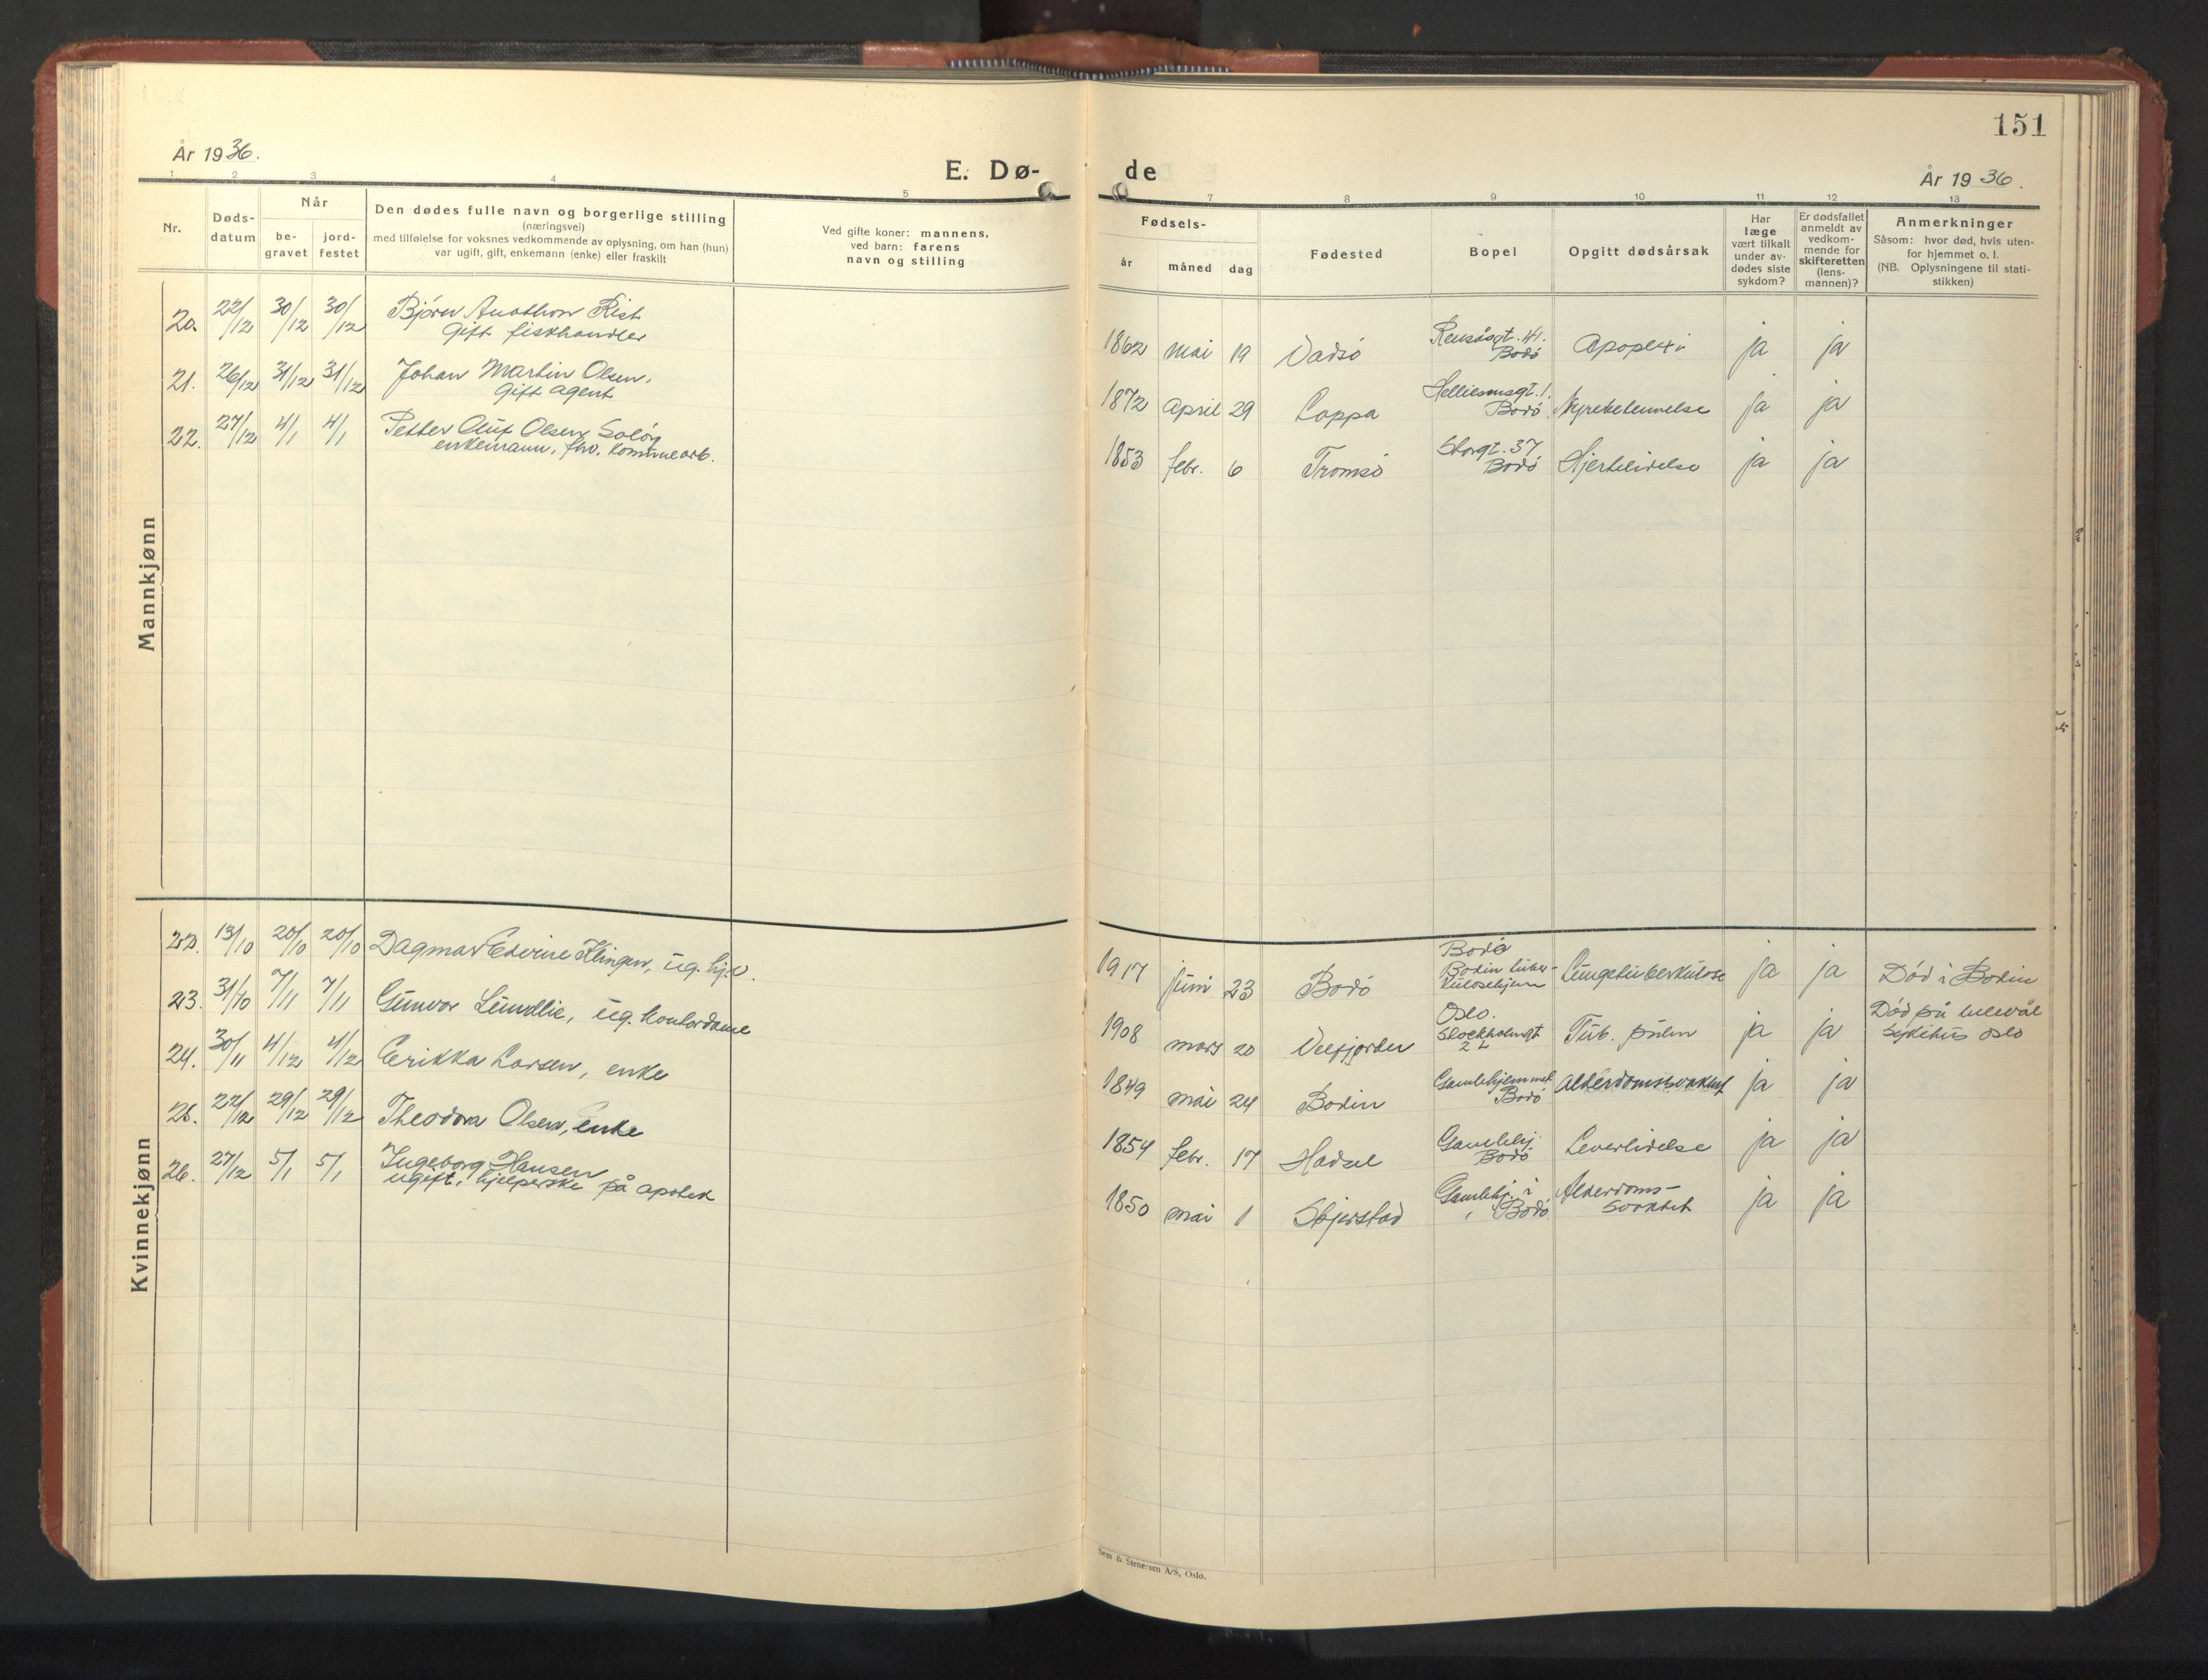 151
År 1936.
E. Dø-
de
År 1936.
1 2 3 4 5
7 8 9 10 11 12 13
Nr.
Døds-
datum
Når
be-
gravet
jord-
festet
Den dødes fulle navn og borgerlige stilling
(næringsvei)
med tilføielse for voksnes vedkommende av oplysning, om han (hun)
var ugift, gift, enkemann (enke) eller fraskilt
Ved gifte koner: mannens,
ved barn: farens
navn og stilling
Fødsels-
år måned dag
Fødested
Bopel
Opgitt dødsårsak
Har
læge
vært tilkalt
under av-
dødes siste
sykdom?
Er dødsfallet
anmeldt av
vedkom-
mende for
skifteretten
(lens-
mannen)?
Anmerkninger
Såsom: hvor død, hvis uten-
for hjemmet o. l.
(NB. Oplysningene til stati-
stikken)
Mannkjønn
20. 22/12 30/12 30/12 Bjørn Rist
Gift fiskhandler
1862 mai 19 Vadsö 41. Bodö Apoplexi ja ja
21. 26/12 31/12 31/12 Johan Martin Olsen,
Gift agent
1872 April 29 Loppa Bodö Nyrebetennelse ja ja
22. 27/12 4/1 4/1 Petter Oluf Olsen
enkemann, fhv. kommunearb.
1853 febr. 6 Tromsö Storgt. 37 Bodö Hjertelidelse ja ja
Kvinnekjønn
22. 13/10 20/10 20/10 Dagmar Edvine Klingen, ug.
1917 juni 23 Bodö Bodö
Bodin tuber-
kulosehjem Lungetuberkulose ja ja Död i Bodin
23. 31/10 7/11 7/11 Gunvor Lundlie, ug. kontordame
1908 mars 20 Velfjorden Oslo.
Stockholmgt
2 L Tub. pulm ja ja Död på Ullevål
sykehus Oslo
24. 30/11 4/12 4/12 Erikka Larsen, enke
1849 mai 24 Bodin Gamlehjemmet
Bodö Alderdomssvakhet ja ja
25. 22/12 29/12 29/12 Theodora Olsen, enke
1854 febr. 17 Hadsel Gamlehj.
Bodö Leverlidelse ja ja
26. 27/12 5/1 5/1 Ingeborg Hansen
ugift, hjelperske på apotek
1850 mai 1 Skjerstad Gamlehj. i
Bodö. Alderdoms-
svakhet ja ja
Sem & Stenersen A/S, Oslo.